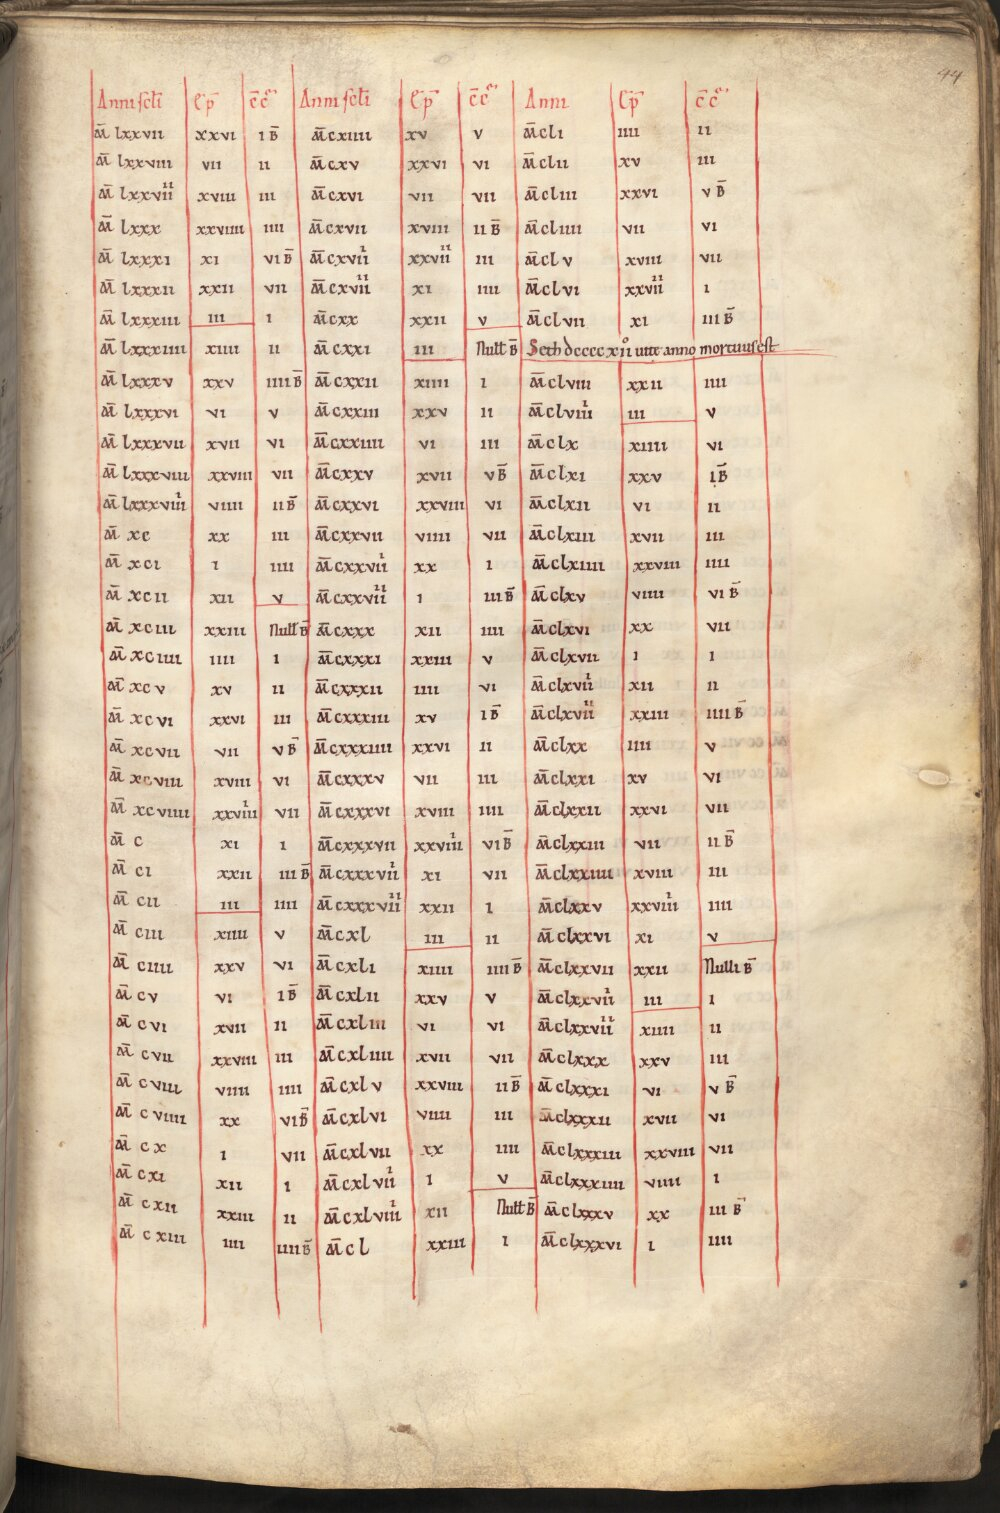 44
Anni sc̄li Ep̄ c̄c̄ Anni sc̄li Ep̄ c̄c̄ Anni Ep̄ c̄c̄
M̄ lxxvii xxvi i B̄ M̄ cxiiii xv v M̄ cli iiii ii
M̄ lxxviii vii ii M̄ cxv xxvi vi M̄ clii xv iii
M̄ lxxviiii xviii iii M̄ cxvi vii vii M̄ cliii xxvi v B̄
M̄ lxxx xxviiii iiii M̄ cxvii xviii ii B̄ M̄ cliiii vii vi
M̄ lxxxi xi vi B̄ M̄ cxviii xxviiii iii M̄ clv xviii vii
M̄ lxxxii xxii vii M̄ cxviiii xi iiii M̄ clvi xxviiii i
M̄ lxxxiii iii i M̄ cxx xxii v M̄ clvii xi iii B̄
M̄ lxxxiiii xiiii ii M̄ cxxi iii Null B̄ Seth dccccxiiº uite anno mortuus est
M̄ lxxxv xxv iiii B̄ M̄ cxxii xiiii i M̄ clviii xxii iiii
M̄ lxxxvi vi v M̄ cxxiii xxv ii M̄ clviiii iii v
M̄ lxxxvii xvii vi M̄ cxxiiii vi iii M̄ clx xiiii vi
M̄ lxxxviii xxviii vii M̄ cxxv xvii v B̄ M̄ clxi xxv i B̄
M̄ lxxxviiii viiii ii B̄ M̄ cxxvi xxviii vi M̄ clxii vi ii
M̄ xc xx iii M̄ cxxvii viiii vii M̄ clxiii xvii iii
M̄ xci i iiii M̄ cxxviii xx i M̄ clxiiii xxviii iiii
M̄ xcii xii v M̄ cxxviiii i iii B̄ M̄ clxv viiii vi B̄
M̄ xciii xxiii Null B̄ M̄ cxxx xii iiii M̄ clxvi xx vii
M̄ xciiii iiii i M̄ cxxxi xxiii v M̄ clxvii i i
M̄ xcv xv ii M̄ cxxxii iiii vi M̄ clxviii xii ii
M̄ xcvi xxvi iii M̄ cxxxiii xv i B̄ M̄ clxviiii xxiii iiii B̄
M̄ xcvii vii v B̄ M̄ cxxxiiii xxvi ii M̄ clxx iiii v
M̄ xcviii xviii vi M̄ cxxxv vii iii M̄ clxxi xv vi
M̄ xcviiii xxviiii vii M̄ cxxxvi xviii iiii M̄ clxxii xxvi vii
M̄ c xi i M̄ cxxxvii xxviiii vi B̄ M̄ clxxiii vii ii B̄
M̄ ci xxii iii B̄ M̄ cxxxviii xi vii M̄ clxxiiii xviii iii
M̄ cii iii iiii M̄ cxxxviiii xxii i M̄ clxxv xxviiii iiii
M̄ ciii xiiii v M̄ cxl iii ii M̄ clxxvi xi v
M̄ ciiii xxv vi M̄ cxli xiiii iiii B̄ M̄ clxxvii xxii Nulli B̄
M̄ cv vi i B̄ M̄ cxlii xxv v M̄ clxxviii iii i
M̄ cvi xvii ii M̄ cxliii vi vi M̄ clxxviiii xiiii ii
M̄ cvii xxviii iii M̄ cxliiii xvii vii M̄ clxxx xxv iii
M̄ cviii viiii iiii M̄ cxlv xxviii ii B̄ M̄ clxxxi vi v B̄
M̄ cviiii xx vi B̄ M̄ cxlvi viiii iii M̄ clxxxii xvii vi
M̄ cx i vii M̄ cxlvii xx iiii M̄ clxxxiii xxviii vii
M̄ cxi xii i M̄ cxlviii i v M̄ clxxxiiii viiii i
M̄ cxii xxiii ii M̄ cxlviiii xii Null B̄ M̄ clxxxv xx iii B̄
M̄ cxiii iiii iiii B̄ M̄ cl xxiii i M̄ clxxxvi i iiii